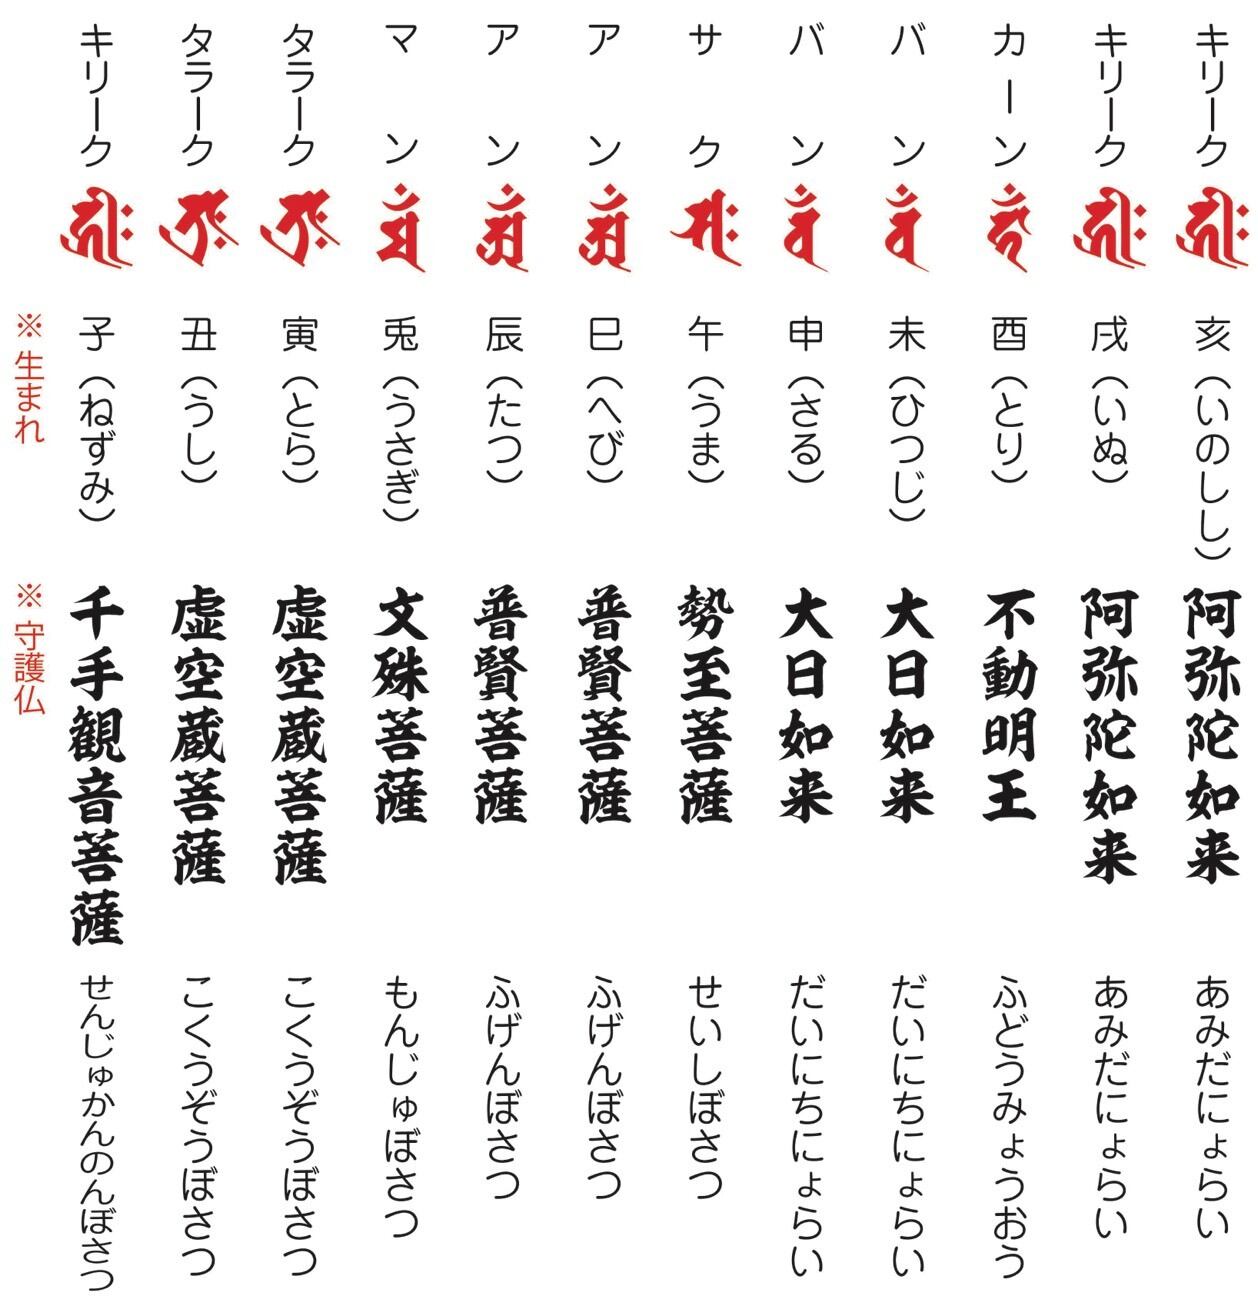 ※生まれ ※守護仏
キリーク 子（ねずみ） 千手観音菩薩 せんじゅかんのんぼさつ
タラーク 丑（うし） 虚空蔵菩薩 こくうぞうぼさつ
タラーク 寅（とら） 虚空蔵菩薩 こくうぞうぼさつ
マン 兎（うさぎ） 文殊菩薩 もんじゅぼさつ
アン 辰（たつ） 普賢菩薩 ふげんぼさつ
アン 巳（へび） 普賢菩薩 ふげんぼさつ
サク 午（うま） 勢至菩薩 せいしぼさつ
バン 申（さる） 大日如来 だいにちにょらい
バン 未（ひつじ） 大日如来 だいにちにょらい
カーン 酉（とり） 不動明王 ふどうみょうおう
キリーク 戌（いぬ） 阿弥陀如来 あみだにょらい
キリーク 亥（いのしし） 阿弥陀如来 あみだにょらい